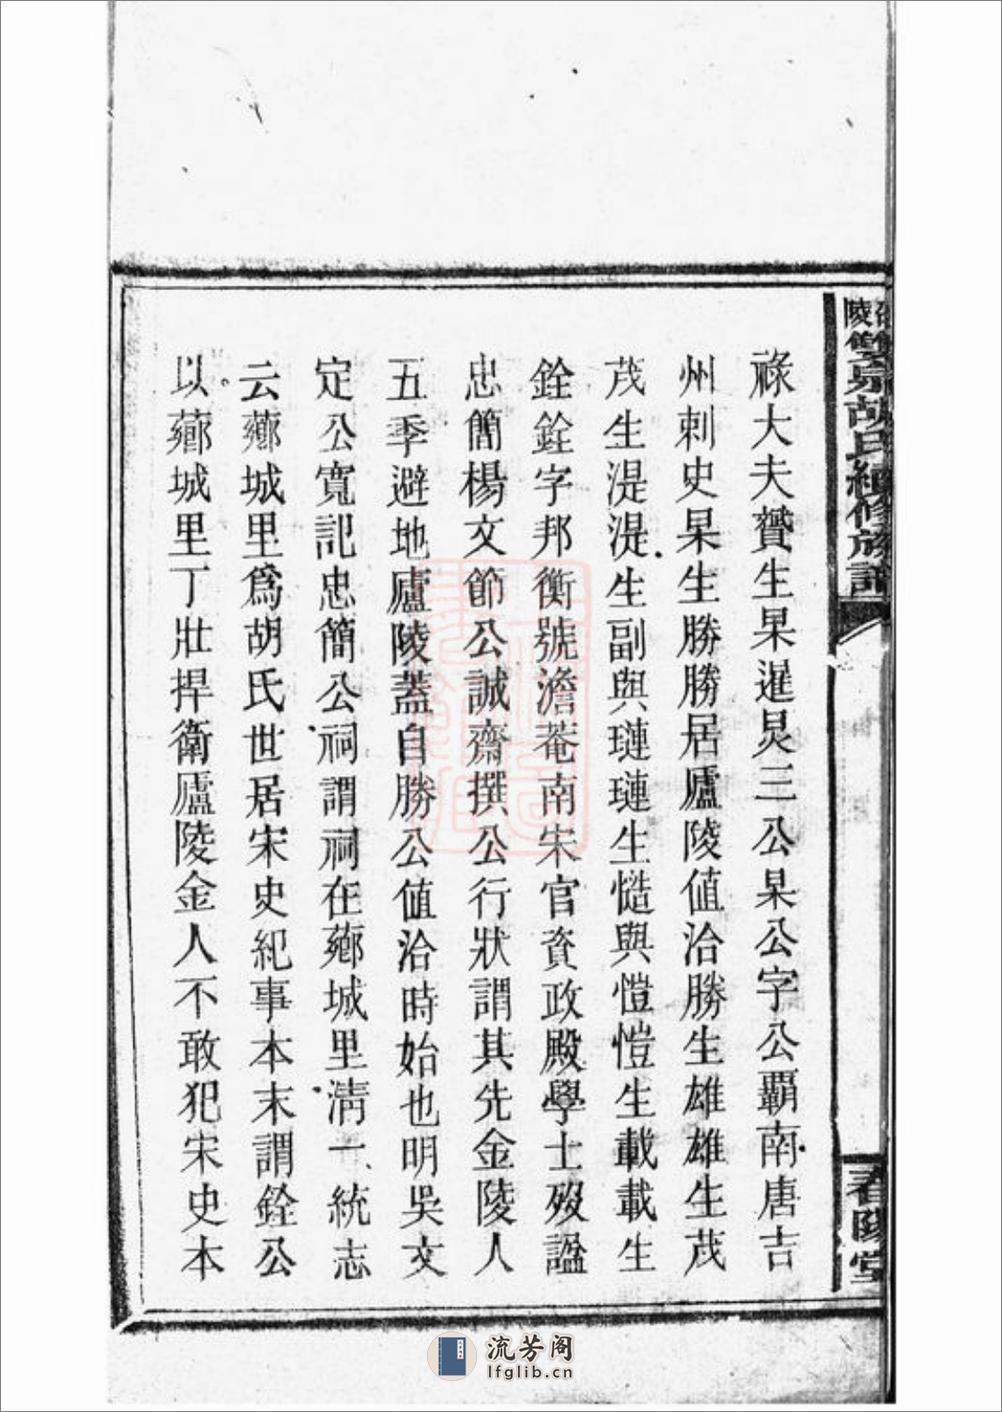 陵雙京胡氏續修族譜
春陽堂
祿大夫贇生杲暹炅三公杲公字公覇南唐吉
州刺史杲生勝勝居廬陵値洽勝生雄雄生茂
茂生湜湜生副與璉璉生慥與愷愷生載載生
銓銓字邦衡號澹菴南宋官資政殿學士歿諡
忠簡楊文節公誠齋撰公行狀謂其先金陵人
五季避地廬陵蓋自勝公値洽時始也明吳文
定公寬記忠簡公祠謂祠在薌城里淸一統志
云薌城里爲胡氏世居宋史紀事本末謂銓公
以薌城里丁壯捍衛廬陵金人不敢犯宋史本
流芳阁
lfglib.cn